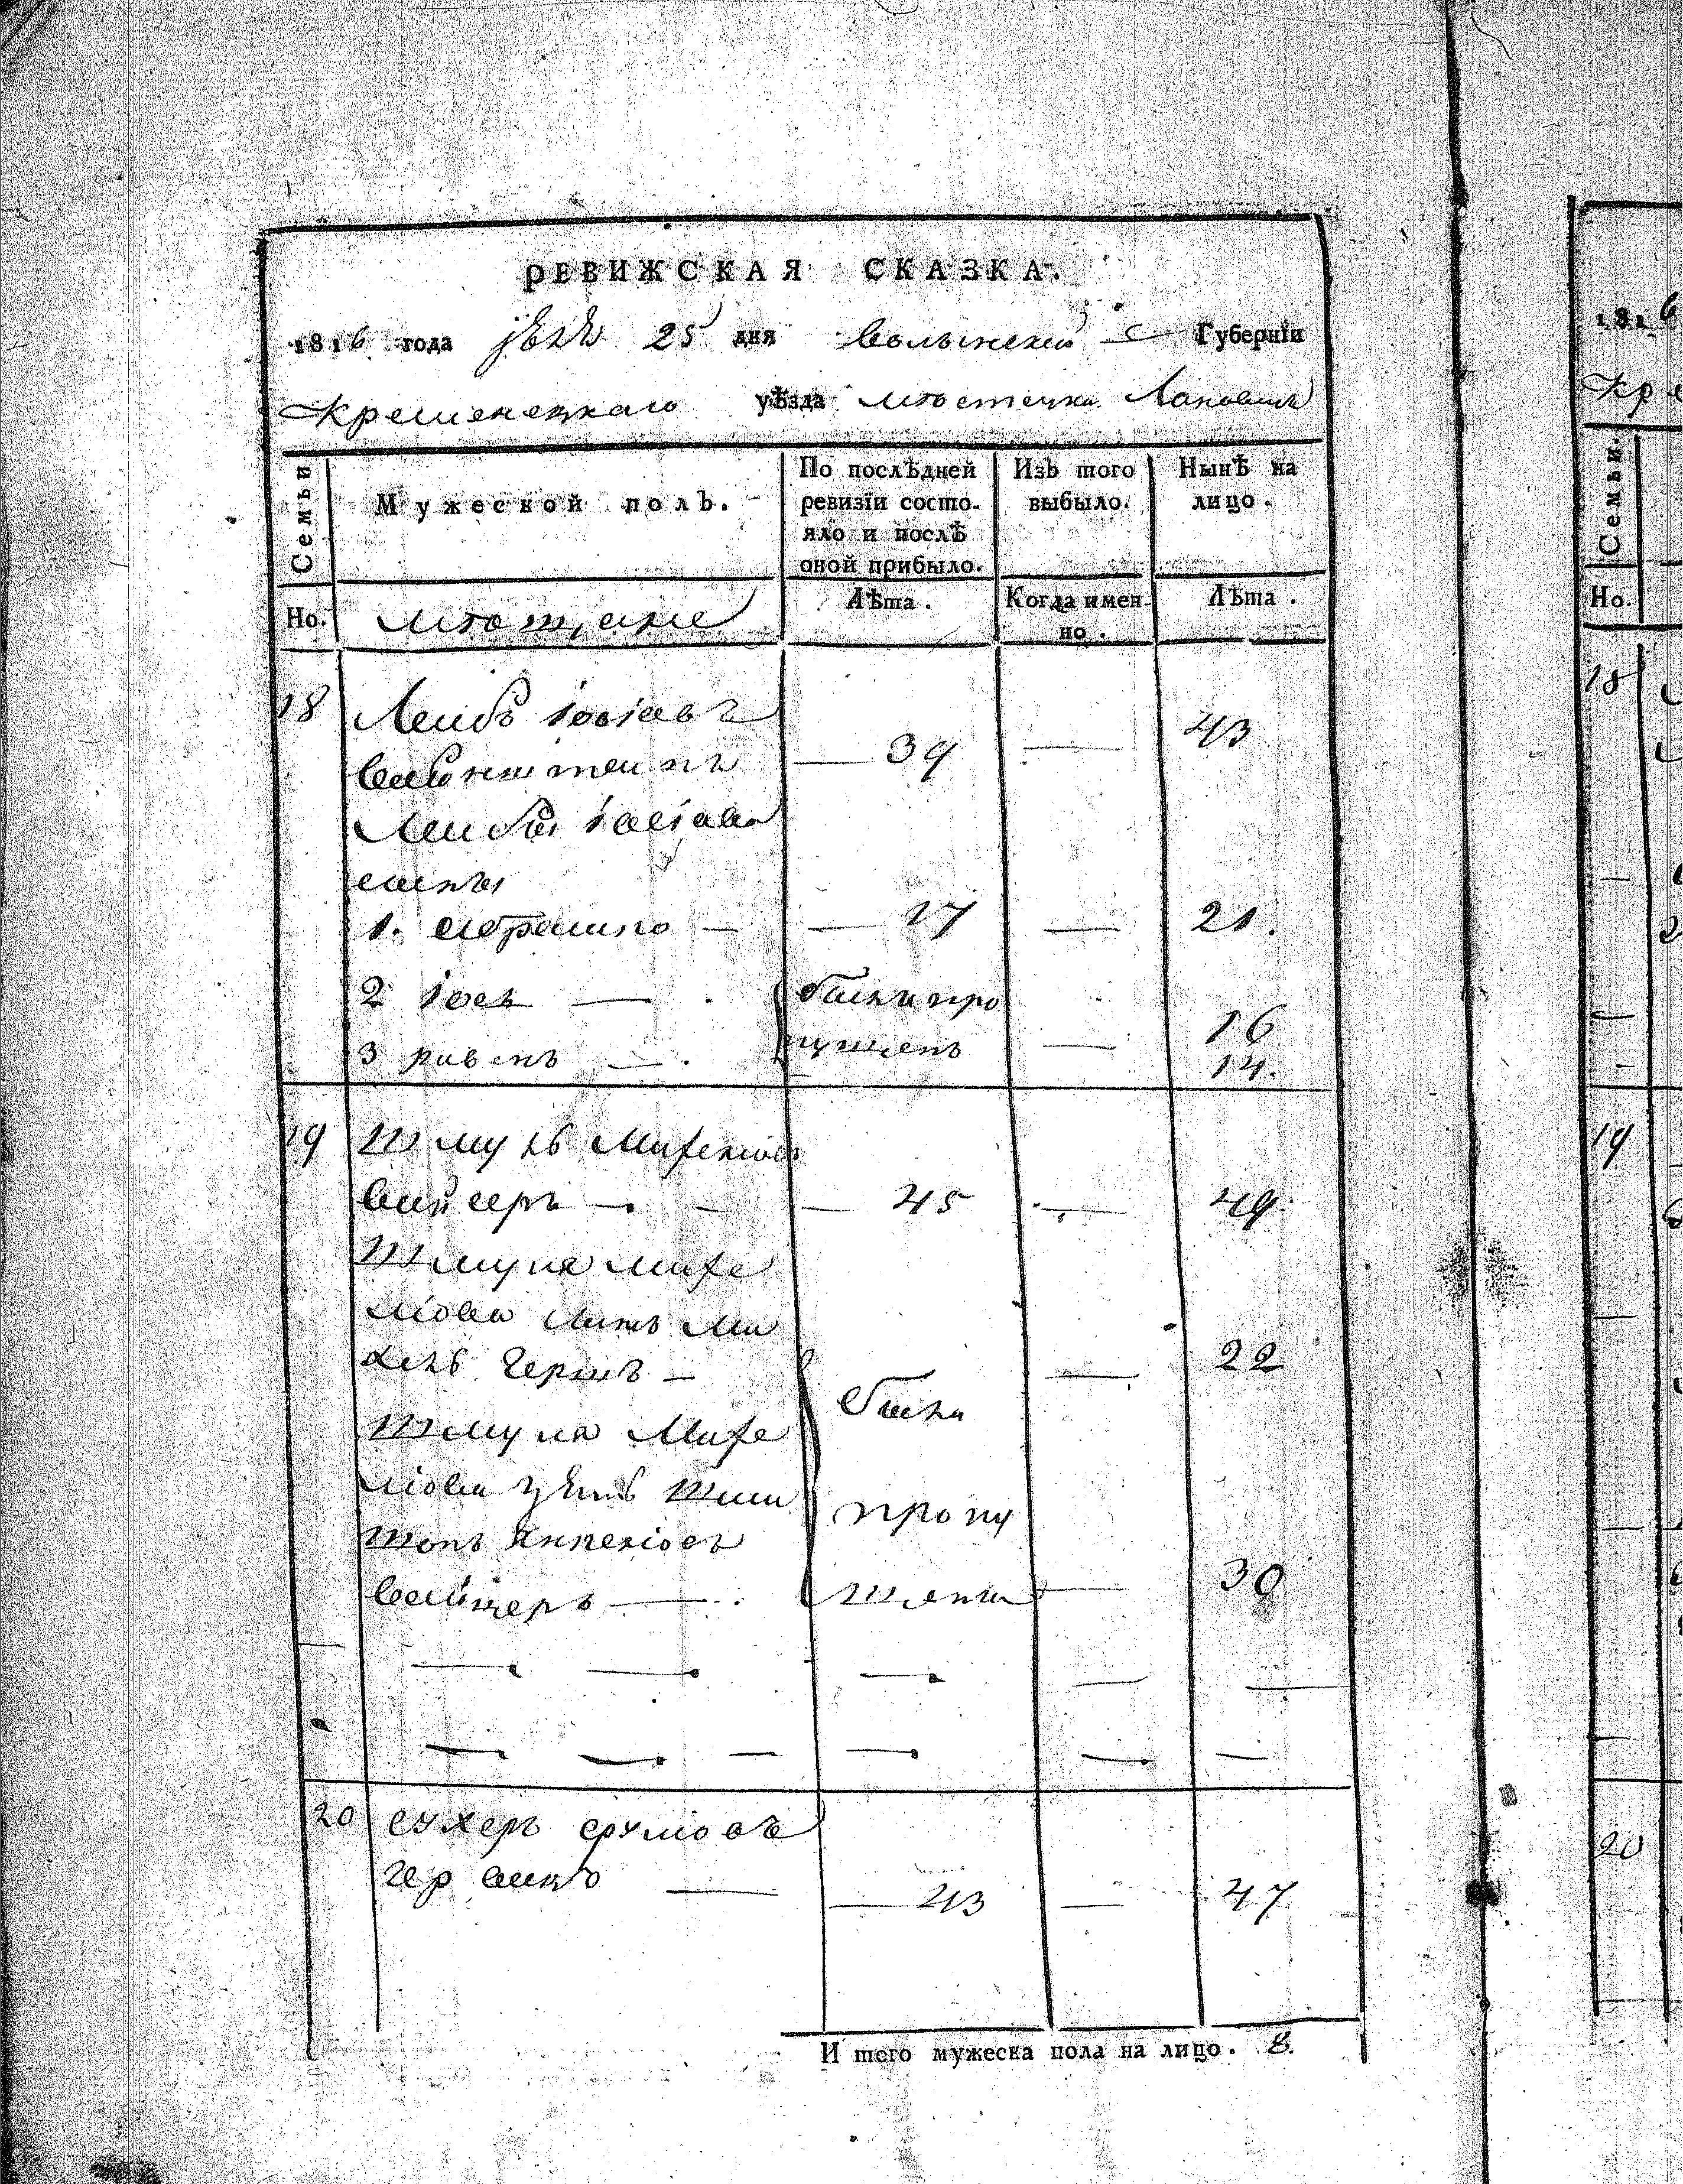 РЕВИЖСКАЯ СКАЗКА.
1816 года 25 дня Волынской Губернїи
Кременецкаго уѣзда мѣстечка Лановецъ
Семьи
Мужеской полъ.
По послѣдней ревизїи состо-
яло и послѣ
оной прибыло.
Изъ того
выбыло.
Нынѣ на
лицо.
Но.
мѣщане
Лѣта.
Когда имен-
но.
Лѣта.
18 Лейбъ іосіовъ
Вайнштейнъ — 39 — 43
Лейбы іосіова
сыны
1. Абрамко — — 17 — 21.
2 іось — были про 16
3 ривенъ — пущены — 14.
19 Шмуль Михелiовъ
Вайсеръ — — 45 — 49
Шмуля михе
ліова зять Ми
хель Гершъ — — 22
Шмуля Михе
ліова зять
были
пропу
щены — 30
20 Сухеръ срулiовъ
— 43 — 47
И того мужеска пола на лицо. 8.
1816
Кре
Семьи.
Но.
18
19
20